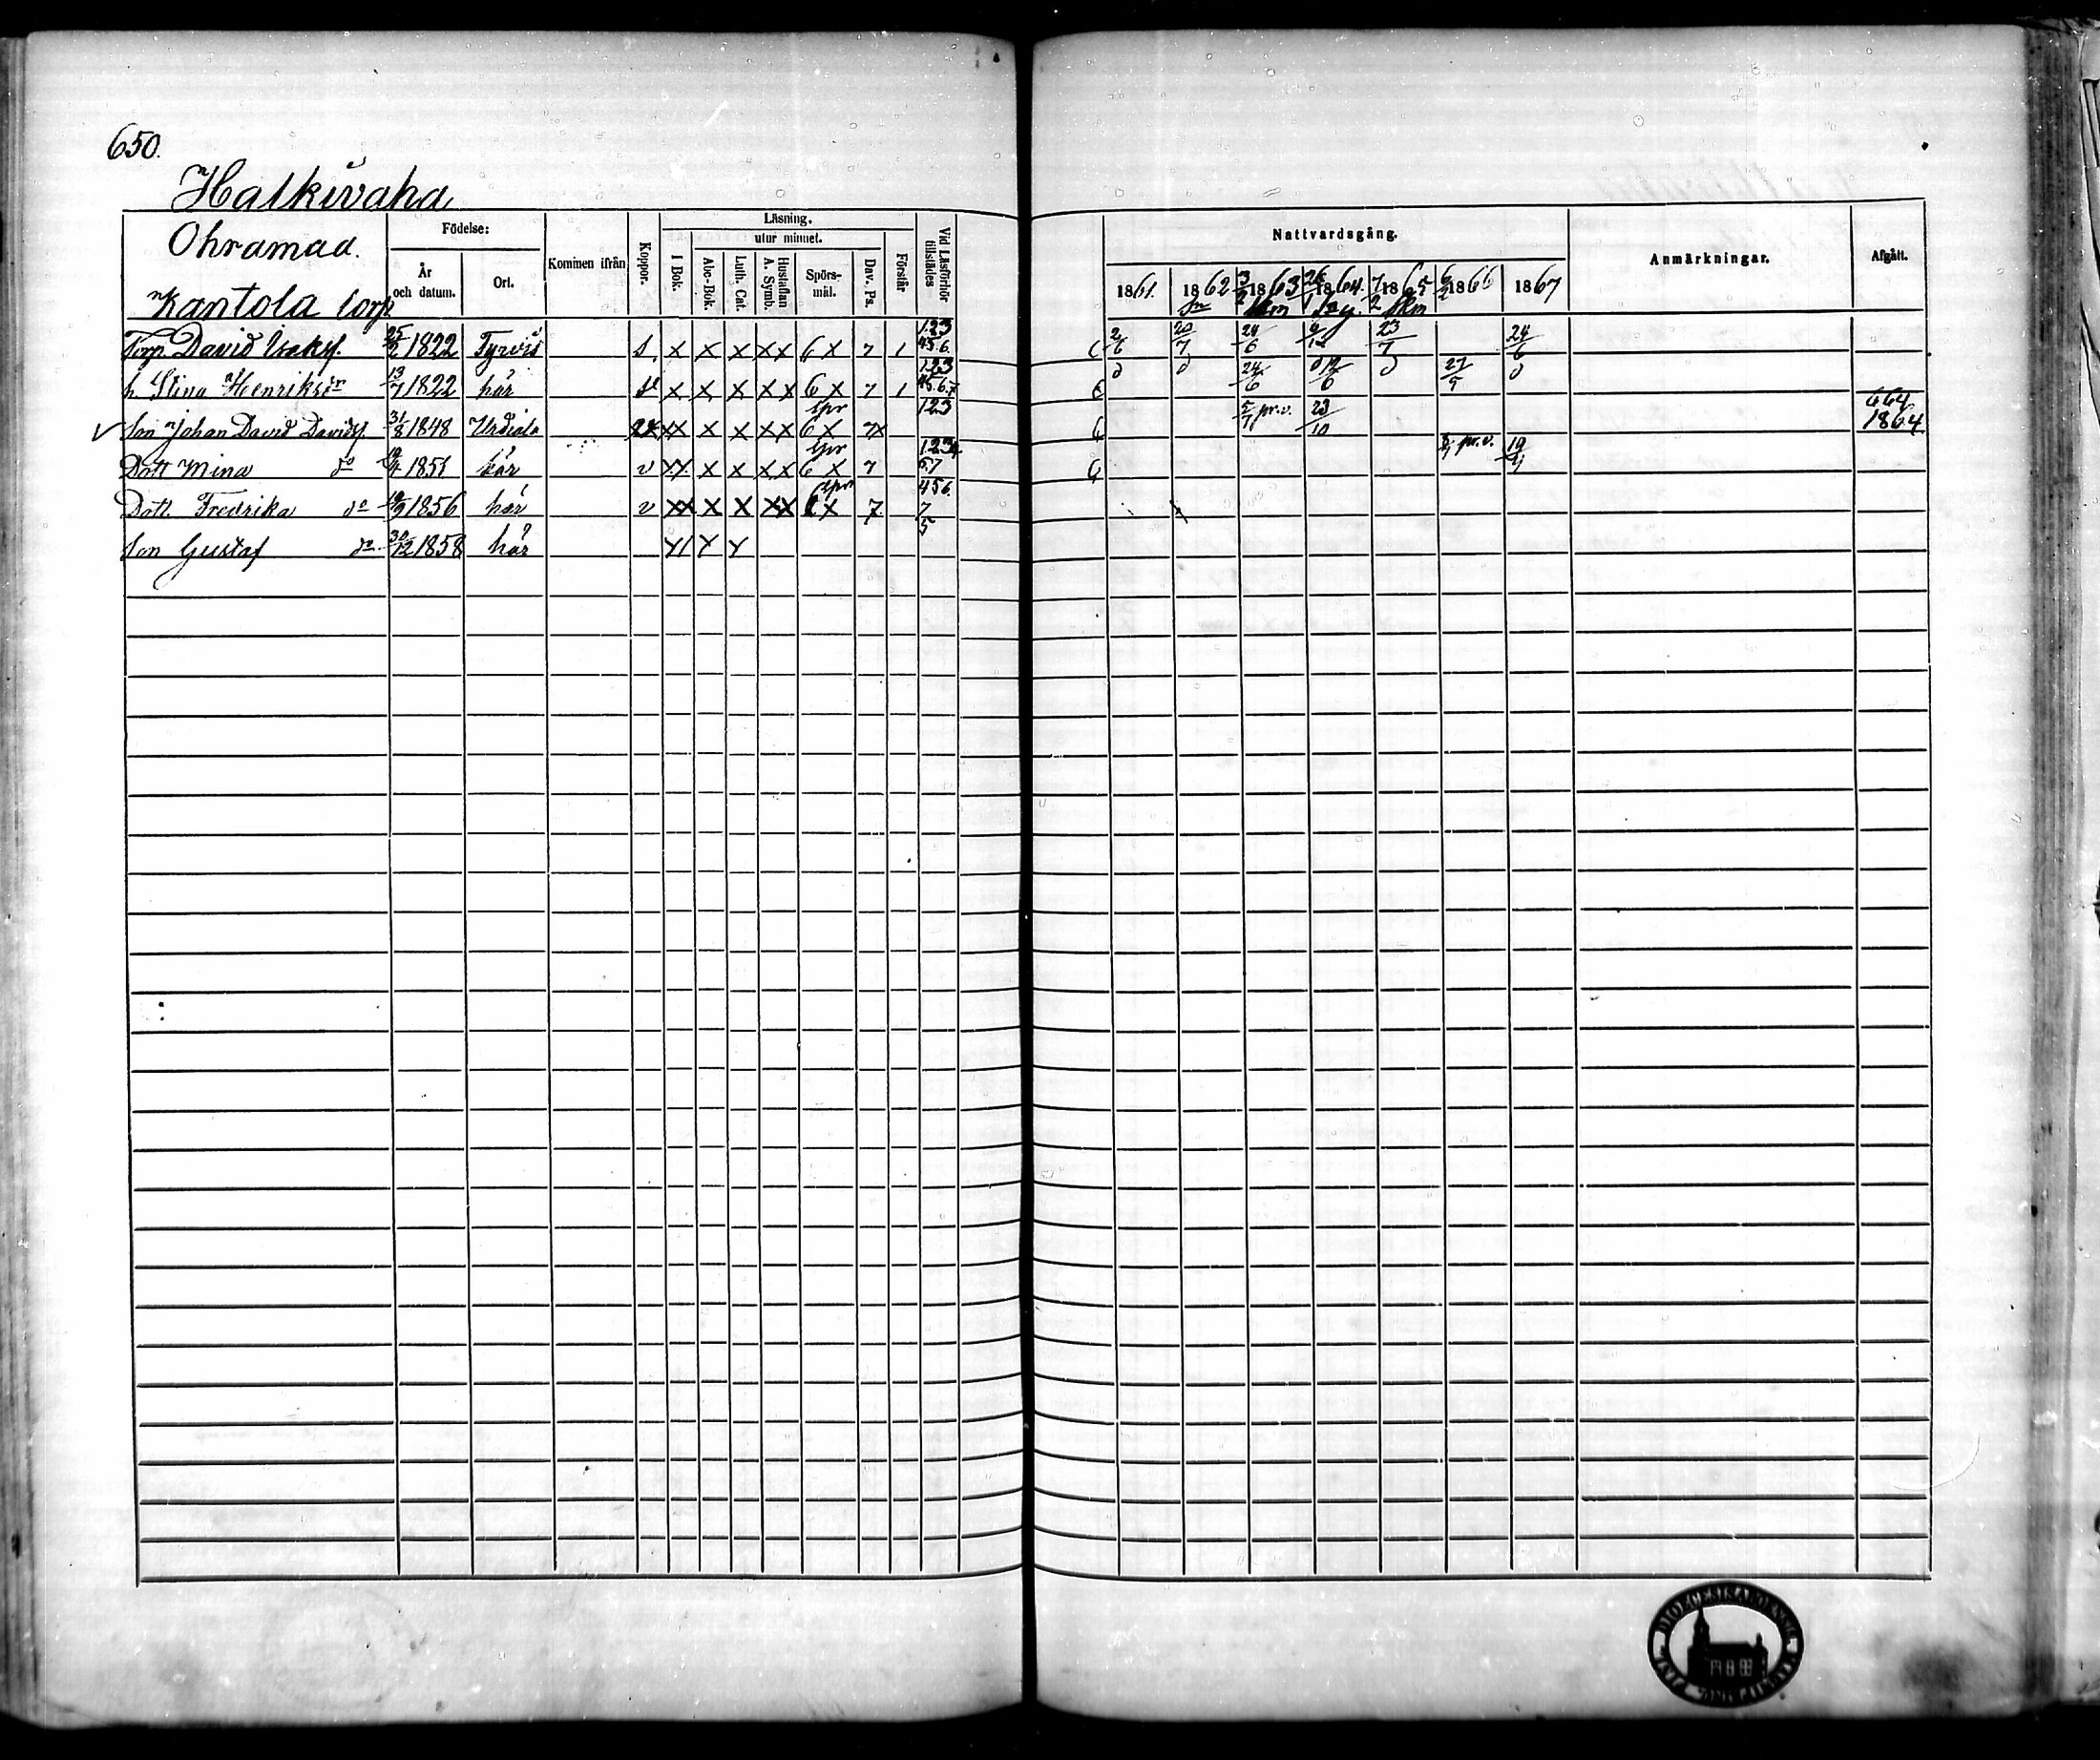 650.
Halkivaha
Ohramaa.
Kantola torp
Födelse:
År och datum.
Ort.
Kommen ifrån
Koppor.
Läsning.
utur minnet.
I Bok.
Abc-Bok.
Luth. Cat.
Hustaflan A. Symb.
Spörsmål.
Dav. Ps.
Förstår
Vid Läsförhör tillstädes
Nattvardsgång.
1861. 1862 3/2 1863 26/1 1864. 7/2 1865 1866 1867
Anmärkningar.
Afgått.
Torp. David Isaksf. 25/2 1822 Tyrvis s. x x x xx 6 x 7 1 123 456. 2/6 20/7 24/6 23/7 24/6
h. Stina Henriksdr 13/7 1822 här x x x xx 6 x 7 1 123 24/6 12/6 27/5
Son Johan David Davidsf. 31/8 1848 Urdiala xx x x xx 6 x 7x spr 123 5/7 pr.v. 23/10 664 1864
Dott Mina do 1851 här v xx x x xx 6 x 7 spr 1234 67 pr.v.
Dott. Fredrika do 19/9 1856 här v xx x x xx x 7 spr 456. 7
Son Gustaf do 30/12 1858 här 5